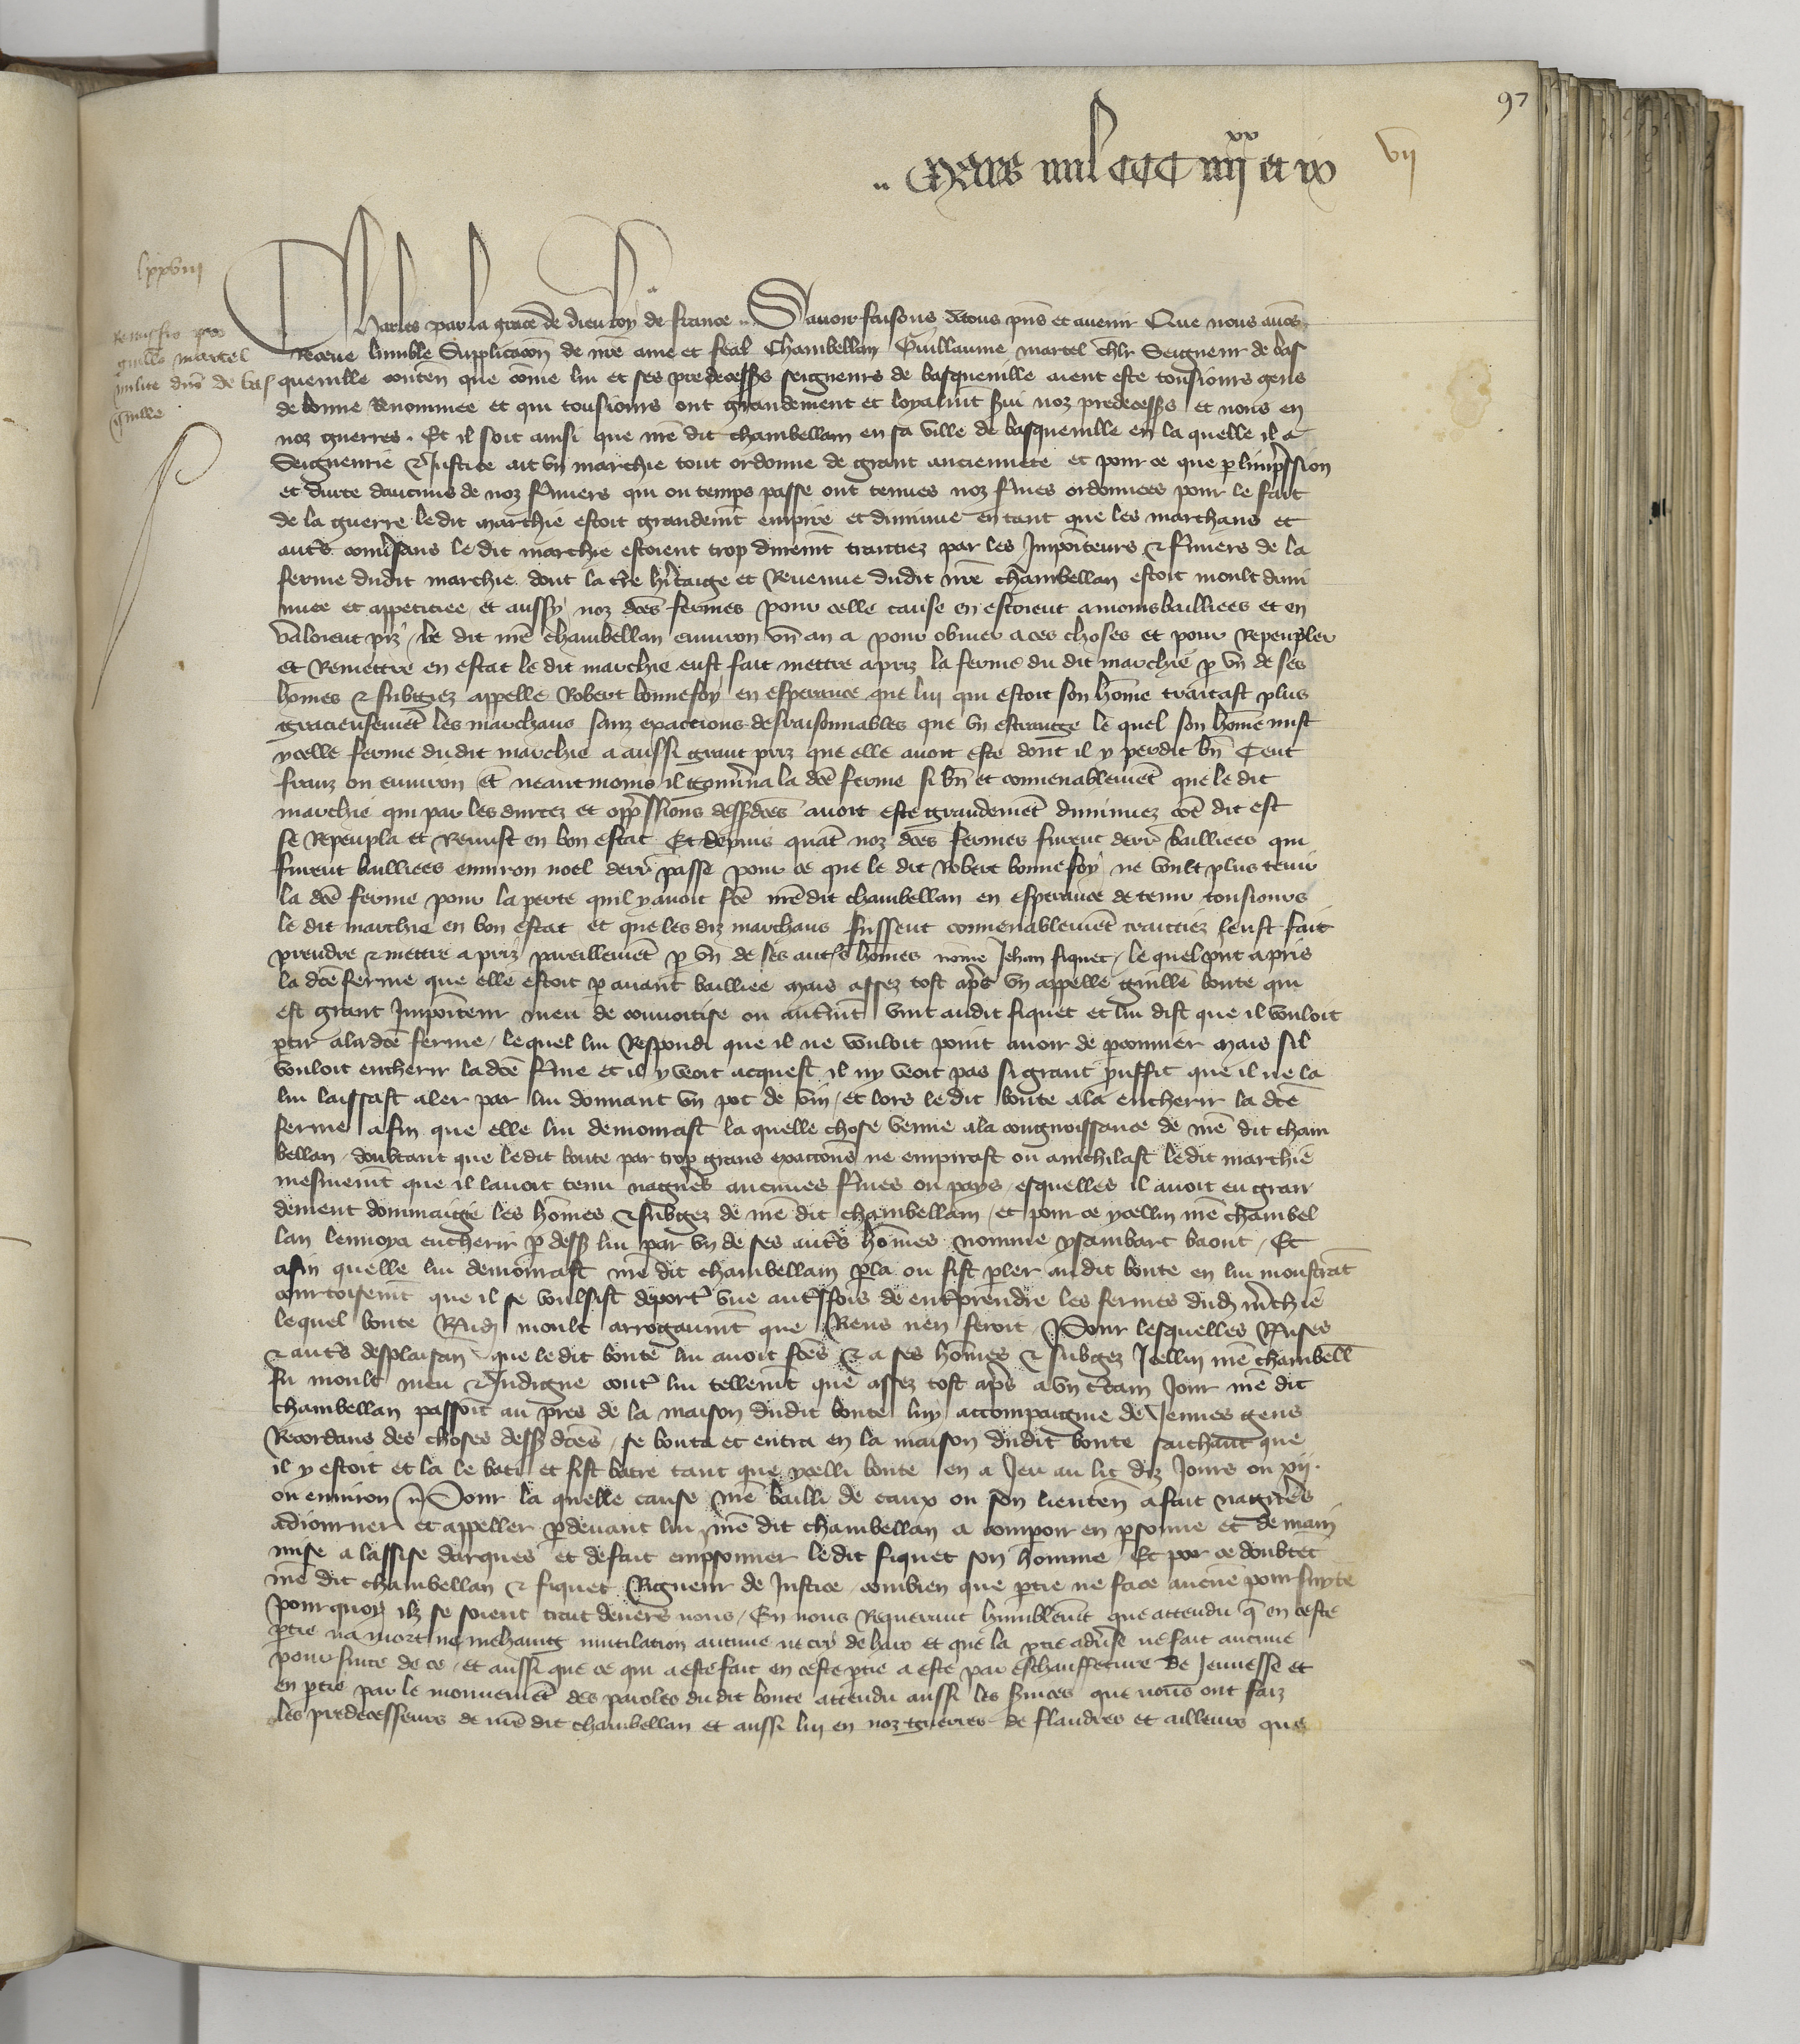 97
Mars mil CCC IIIIxx et ix
vii
lxxviii
Remissio pro
Guillo martel
milite dno de bas
quille
Charles par la grace de dieu Roy de france Savoir faisons a touz pns et avenir Que nous avons
Receue lumble Supplicacon de nre ame et feal Chambellan Guillaume martel chlr Seigneur de bas
queville conten que come lui et ses predecesss seigneurs de basqueville aient este tousiours gens
de bonne Renommee et qui tousiours ont grandement et loyalmt svi noz predecesss et nous en
noz guerres. Et il soit ainsi que nre dit chambellan en sa ville de basqueville en la quelle il a
Seigneurie & Justice ait un marchie tout ordonne de grant anciennete et pour ce que p limpssion
et durte daucuns de noz fmiers qui ou temps passe ont tenues noz fmes ordonnees pour le fait
de la guerre le dit marchie estoit grandemt empire et diminue en tant que les marchans et
auts convsans le dit marchie estoient trop duremt traictiez par les Impoiteurs & fmiers de la
ferme dudit marchie dont la tre hitaige et Revenue dudit nre chambellan estoit moult dimi
nuee et appeticiee et aussy noz dces fermes pour celle cause en estoient a moins bailliees et en
valoient piz le dit nre chambellan environ un an a pour obvier a ces choses et pour Repeupler
et Remettre en estat le dit marchie eust fait mettre a priz la ferme du dit marchie p un de ses
homes & subgiez appelle Robert bonnefoy en esperance que lui qui estoit son home traitast plus
gracieusemet les marchans sanz exactions desraisonnables que un estrange le quel son home mist
ycelle ferme du dit marchie a aussi grant priz que elle avoit este dont il y perdit bn Cent
franz ou environ Et neantmoins il gouvna la dce ferme si bn et convenablemet que le dit
marchie qui par les durtez et oppssions dessdces avoit este grandemet diminuez coe dit est
se Repeupla et Remist en bon estat Et depuis quat noz dces fermes furent derr bailliees qui
furent bailliees environ noel derr passe pour ce que le dit Robert bonnefoy ne voult plus tenir
la dce ferme pour la perte quil y avoit fce nre dit chambellan en esperance de tenir tousiours
le dit marchie en bon estat et que les diz marchans fussent convenablemet traictiez leust fait
prendre & mettre a priz pareillemet p un de ses auts homes nome Jehan fiquet le quel prit a pris
la dce ferme que elle estoit p avant bailliee mais assez tost aps un appelle guille boute qui
est grant Impoiteur meu de convoitise ou autmt vint audit fiquet et lui dist que il vouloit
ptir a la dce ferme lequel lui Respondi que il ne vouloit point avoir de pconnier mais sil
vouloit encherir la dce fme et il y veoit acquest il ny veoit pas si grant prouffit que il ne la
lui laissast aler par lui donnant un pot de vin et lors le dit boute ala encherir la dce
ferme afin que elle lui demourast la quelle chose venue a la congnoissance de nre dit cham
bellan doubtant que le dit boute par trop grans exaccons ne empirast ou anichilast le dit marchie
mesmemt que il lavoit tenu nagues aucunes fmes ou pays esquelles il avoit eu gran
dement dommaigie les homes & subgez de nre dit chambellam et pour ce ycellui nre chambel
lan lenvoya encherir p dess lui par un de ses auts homes nomme ysambart baout Et
afin quelle lui demourast nre dit chambellam pla ou fist pler audit boute en lui monstrat
courtoisemt que il se voulsist deport une autsfois de entprendre les fermes dud mchie
lequel boute Rndi moult arrogaumt que Riens nen feroit Pour lesquelles Ruses
& auts desplaisan que ledit boute lui avoit fces & a ses homes & subgez Icellui nre chambell
fu moult meu & Indigne cont lui tellemt que assez tost aps a un ctain Jour nre dit
chambellan passoit au pres de la maison dudit boute luy accompaignie de Jeunes gens
Recordans des choses dess dces se bouta et entra en la maison dudit boute saichant que
il y estoit et la le bati et fist batre tant que ycelli boute en a Jeu au lit diz Jours ou xij.
ou environ Pour la quelle cause nre bailli de caux ou son lieuten a fait nagues
adiourner et appeller pdevant lui nre dit chambellan a compoir en psonne et de main
mise a lassise darques et de fait empsonner ledit fiquet son homme Et por ce doubtet
nre dit chambellan & fiquet Rigueur de Justice combien que ptie ne face aucune poursuyte
pourquoy ilz se soient trait devers nous En nous Requerant humblemt que attendu q en ceste
ptie na mort ne mehaing mutilation aucune ne cry de haro et que la ptie advse ne fait aucune
poursuite de ce et aussi que ce qui a este fait en ceste ptie a este par eschauffeture de Jeunesse et
en ptie par le mouvemet des paroles du dit boute attendu aussi les svices que nous ont faiz
les predecesseurs de nre dit chambellan et aussi lui en noz guerres de flandres et ailleurs que